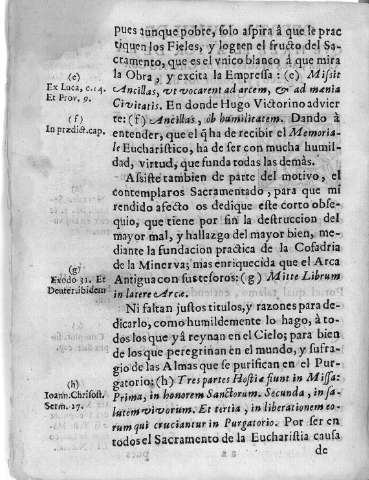 pues aunque pobre, solo aspira à que le prac
tiquen los Fieles, y logren el fructo del Sa-
cramento, que es el vnico blanco à que mira
la Obra, y excita la Empressa: (e) Misit
Ancillas, vt vocarent ad arcem, & ad mænia
Civitatis. En donde Hugo Victorino advier
te: (f) Ancillas, ob humilitatem. Dando à
entender, que el q̃ ha de recibir el Memoria-
le Eucharistico, ha de ser con mucha humil-
dad, virtud, que funda todas las demàs.
Assiste tambien de parte del motivo, el
contemplaros Sacramentado, para que mi
rendido afecto os dedique este corto obse-
quio, que tiene por fin la destruccion del
mayor mal, y hallazgo del mayor bien, me-
diante la fundacion practica de la Cofadria
de la Minerva; mas enriquecida que el Arca
Antigua con sus tesoros: (g) Mitte Librum
in latere Arcæ.
Ni faltan justos titulos, y razones para de-
dicarlo, como humildemente lo hago, à to-
dos los que yà reynan en el Cielo; para bien
de los que peregrinan en el mundo, y sufra-
gio de las Almas que se purifican en el Pur-
gatorio: (h) Tres partes Hostiæ fiunt in Missa:
Prima, in honorem Sanctorum. Secunda, in sa-
lutem vivorum. Et tertia, in liberationem eo-
rum qui cruciantur in Purgatorio. Por ser en
todos el Sacramento de la Eucharistia causa
de
(e)
Ex Luca, c. 14.
Et Prov. 9.
(f)
In prædict. cap.
(g)
Exodo 31. Et
Deuter. ibidem
(h)
Ioann. Chrisost.
Serm. 17.